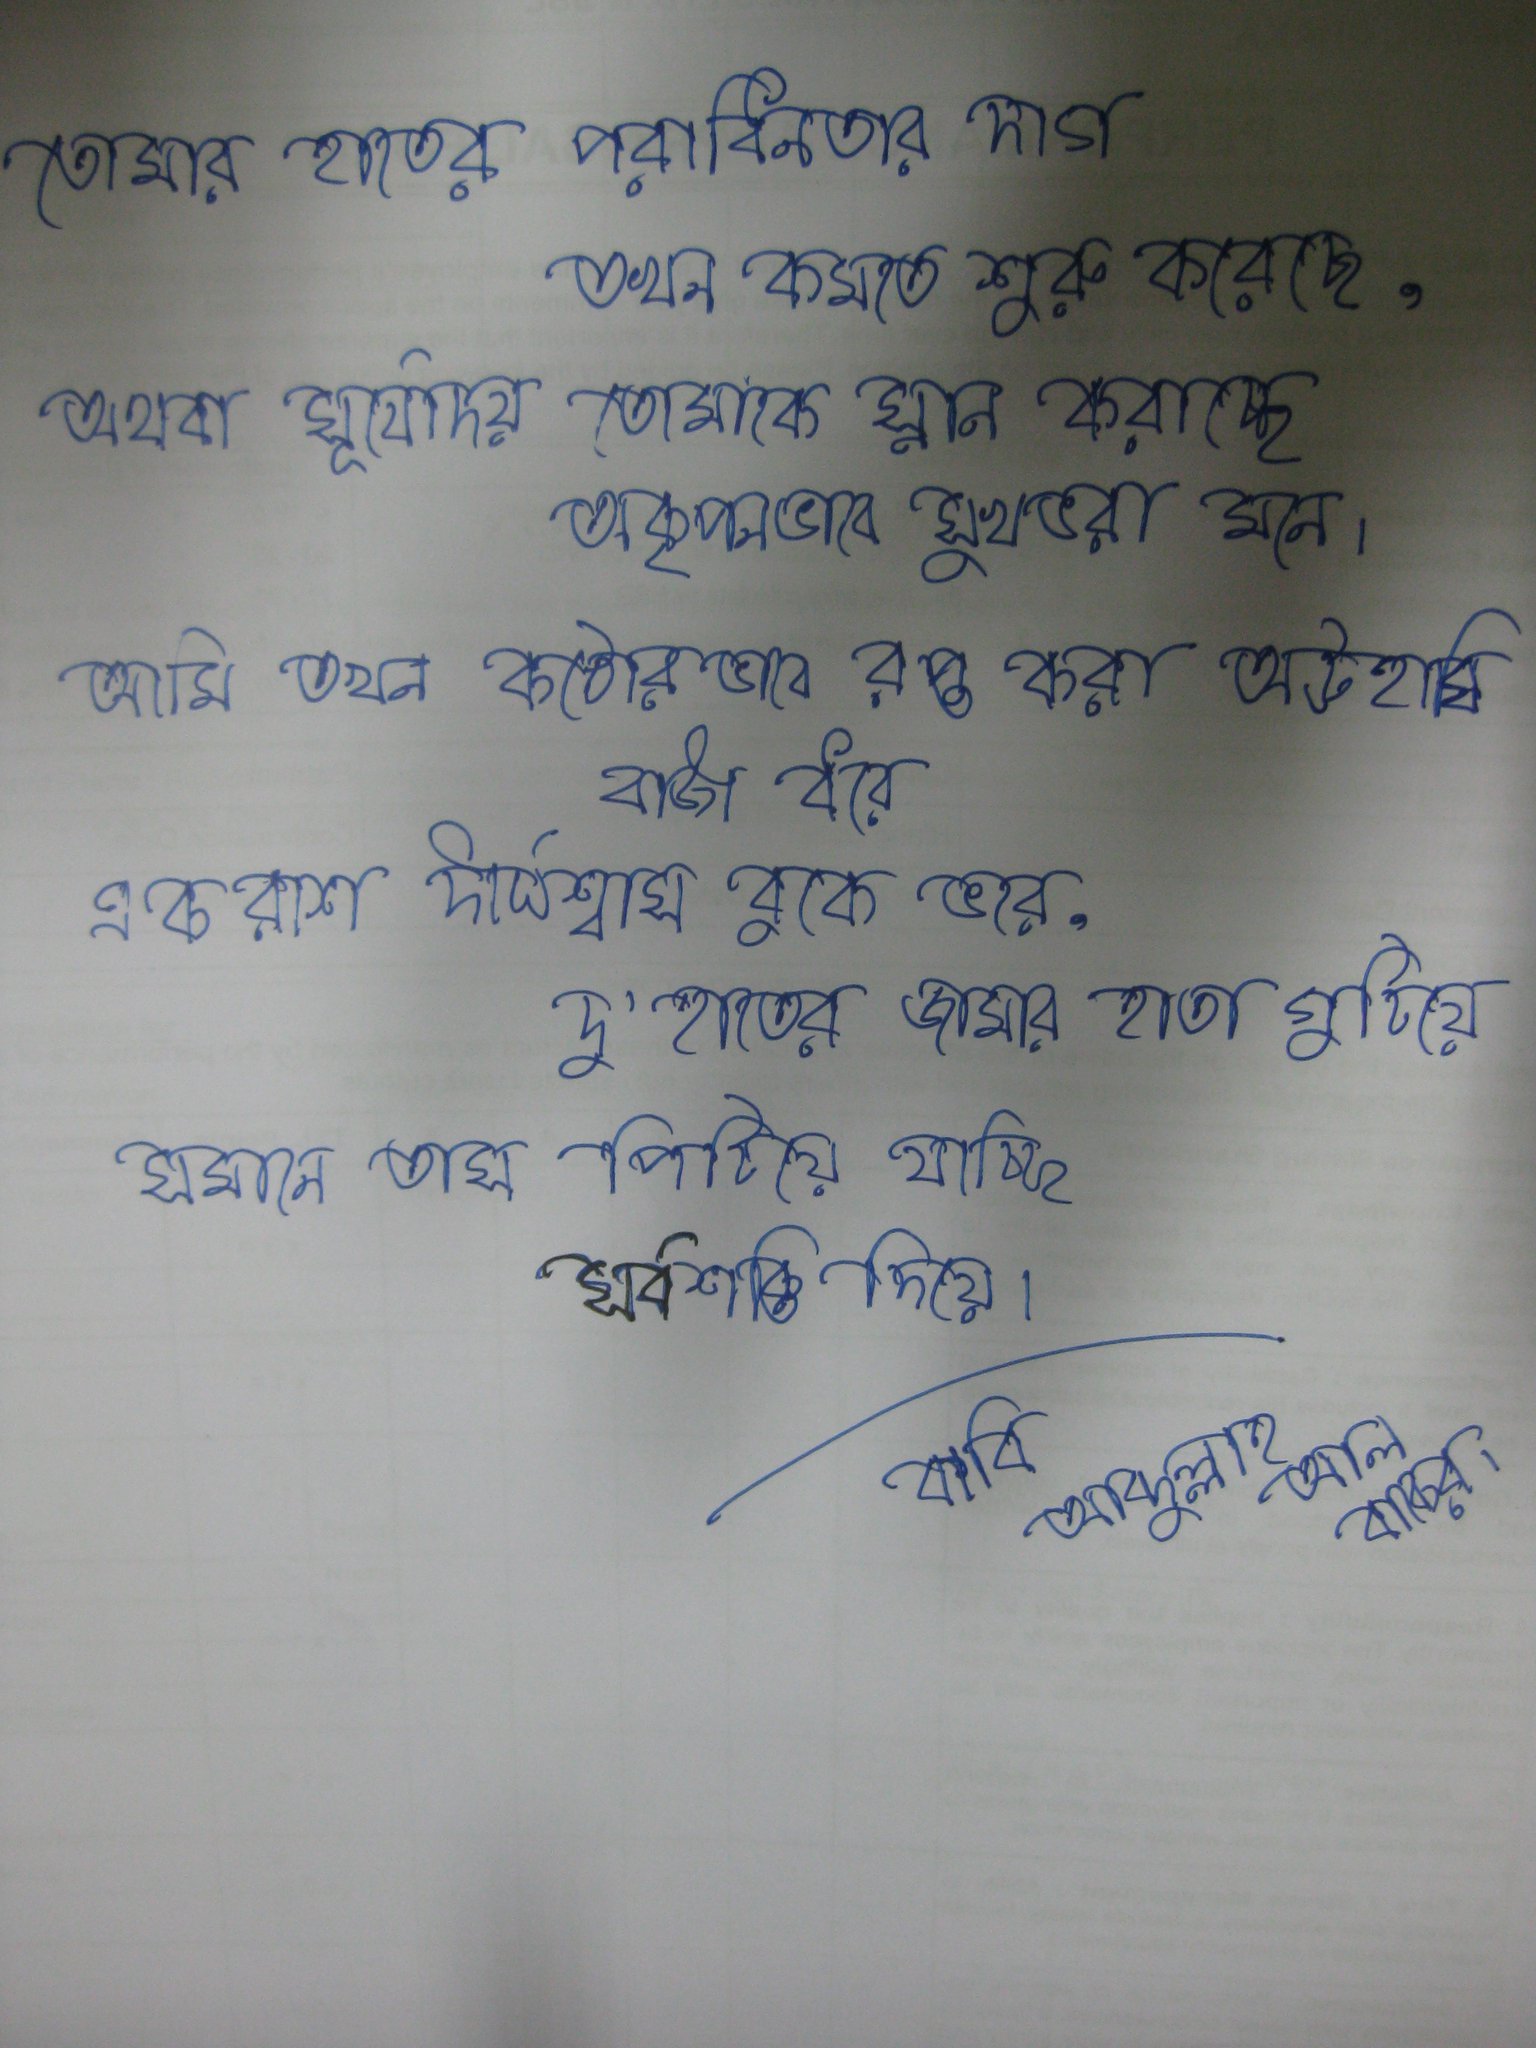 তোমার হাতের পরাধিনতার দাগ
তখন কমতে শুরু করেছে,
অথবা সূর্যোদয় তোমাকে স্নান করাচ্ছে
অকৃপনভাবে সুখভরা মনে।
আমি তখন কঠোরভাবে রপ্ত করা অট্টহাসি
বাজি ধরে
একরাশ দীর্ঘশ্বাস বুকে ভরে,
দু'হাতের জামার হাতা গুটিয়ে
সমানে তাস পিটিয়ে যাচ্ছি
সর্বশক্তি দিয়ে।
কবি
আব্দুল্লাহ আল
বাকের।